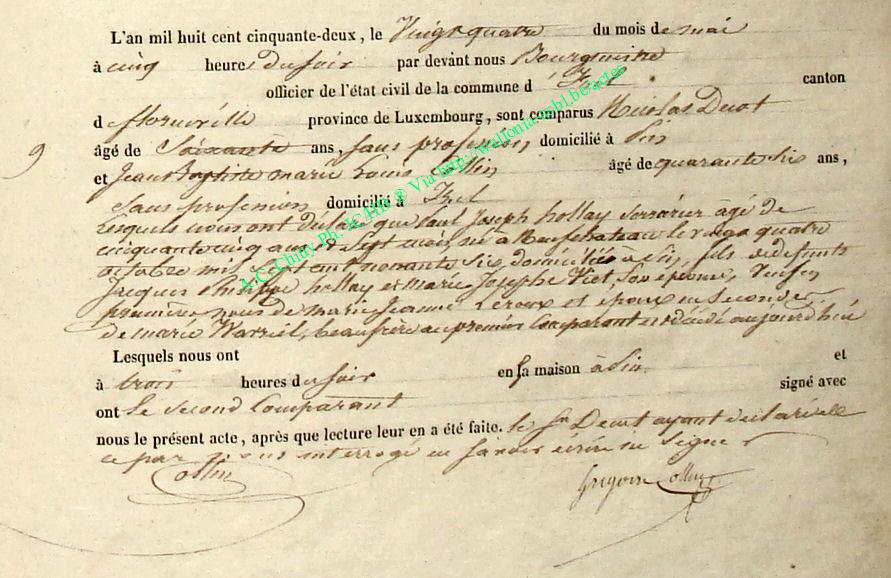 L'an mil huit cent cinquante-deux, le Vingt quatre du mois de mai
à cinq heures du soir par devant nous Bourgmestre
officier de l'état civil de la commune d' Izel canton
de florenville province de Luxembourg, sont comparus Nicolas Decot
9 âgé de Soixante ans, Sans profession domicilié à Pin
et Jean Baptiste marie Louis Collin âgé de quarante Six ans,
Sans profession domicilié à Izel
Lesquels nous ont déclaré que Paul Joseph hollay Serrurier agé de
cinquante cinq ans et Sept mois né à Neufchateau le vingt quatre
octobre mil Sept cent nonante Six domicilié à Pin, fils de defunts
Jacques Philippe hollay et marie Josephe Viet, Son épouse, Veuf en
premières noces de marie Jeanne Leroux et époux en Secondes
de marie Warriel, beau frère au premier Comparant est décédé aujourd'hui
Lesquels nous ont
à trois heures du soir en Sa maison à Pin et
ont le Second Comparant signé avec
nous le présent acte, après que lecture leur en a été faite. le Sr Decot ayant déclaré
ce par nous interrogé ne Savoir écrire ni Signer
Collin Gregoire Collin
A.C. Chiny Ph. ® Via http://wallonia.smbl.be/actes